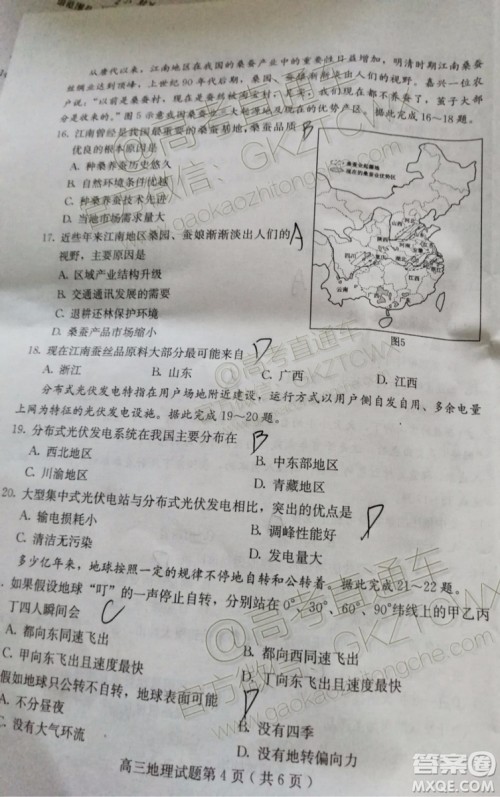 从唐代以来，江南地区在我国的桑蚕产业中的重要性日益增加，明清时期江南桑蚕
丝绸业达到顶峰，上世纪90年代后期，桑园、蚕娘渐渐淡出人们的视野。嘉兴一位农
户说，“以前是桑蚕村，现在是
现在都不养蚕了，茧子大部
分是买来的。”图5示意我国桑蚕业三大起源地及现在的优势产区。据此完成16～18题。
16. 江南曾经是我国最重要的桑蚕基地，桑蚕品质 B
优良的根本原因是
A. 种桑养蚕历史悠久
B. 自然环境条件优越
C. 种桑养蚕技术先进
D. 当地市场需求量大
17. 近些年来江南地区桑园、蚕娘渐渐淡出人们的 A
视野，主要原因是
A. 区域产业结构升级
B. 交通通讯发展的需要
C. 退耕还林保护环境
D. 桑蚕产品市场缩小
陕西
山西
四川
云南
广西
江西
图5
18. 现在江南蚕丝品原料大部分最可能来自 D
A. 浙江 B. 山东 C. 广西 D. 江西
分布式光伏发电特指在用户场地附近建设，运行方式以用户侧自发自用、多余电量
上网为特征的光伏发电设施。据此完成19～20题。
19. 分布式光伏发电系统在我国主要分布在 B
A. 西北地区 B. 中东部地区
C. 川渝地区 D. 青藏地区
20. 大型集中式光伏电站与分布式光伏发电相比，突出的优点是 D
A. 输电损耗小 B. 调峰性能好
C. 清洁无污染 D. 发电量大
多少亿年来，地球按照一定的规律不停地自转和公转着。据此完成21～22题。
. 如果假设地球“叮”的一声停止自转，分别站在0°、30°、60°、90°纬线上的甲乙丙
丁四人瞬间会 C
A. 都向东同速飞出 B. 都向西同速飞出
C. 甲向东飞出且速度最快 D. 丁向东飞出且速度最快
假如地球只公转不自转，地球表面可能 D
A. 不分昼夜 B. 没有四季
C. 没有大气环流 D. 没有地转偏向力
高三地理试题第4页（共6页）
@高考直通车
官方微信：GKZTCWX
gaokaozhitongche.com
答案圈
MXQE.COM